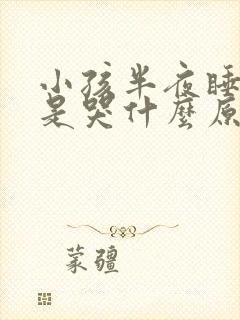 小孩半夜睡
是哭什麼原
蒙疆